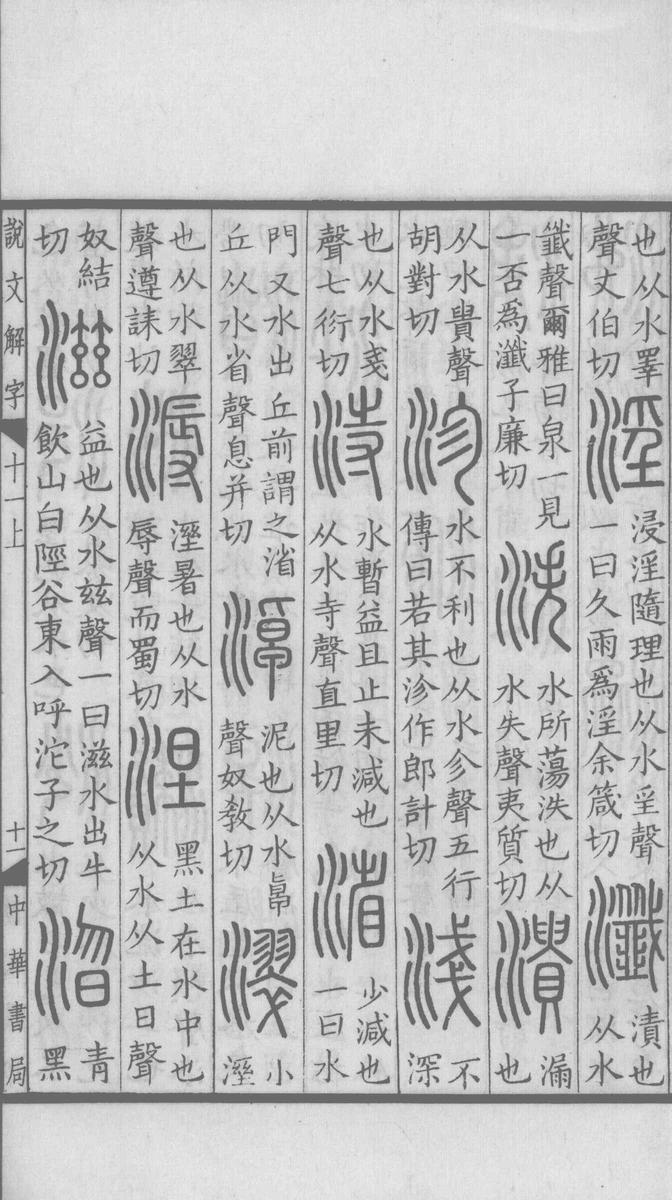 也从水睪
聲丈伯切
淫
浸淫隨理也从水㸒聲
一曰久雨爲淫余箴切
瀸
漬也
从水
韱聲爾雅曰泉一見
一否爲瀸子廉切
泆
水所蕩泆也从
水失聲夷質切
潰
漏
也
从水貴聲
胡對切
沴
水不利也从水㐱聲五行
傳曰若其沴作郎計切
淺
不
深
也从水戔
聲七衍切
洔
水暫益且止未減也
从水寺聲直里切
渻
少減也
一曰水
門又水出丘前謂之渻
丘从水省聲息并切
淖
泥也从水卓
聲奴教切
濢
小
溼
也从水翠
聲遵誄切
溽
溼暑也从水
辱聲而蜀切
涅
黑土在水中也
从水从土日聲
奴結
切
滋
益也从水兹聲一曰滋水出牛
飲山白陘谷東入呼沱子之切
青
黑
說文解字
十一上
十一
中華書局